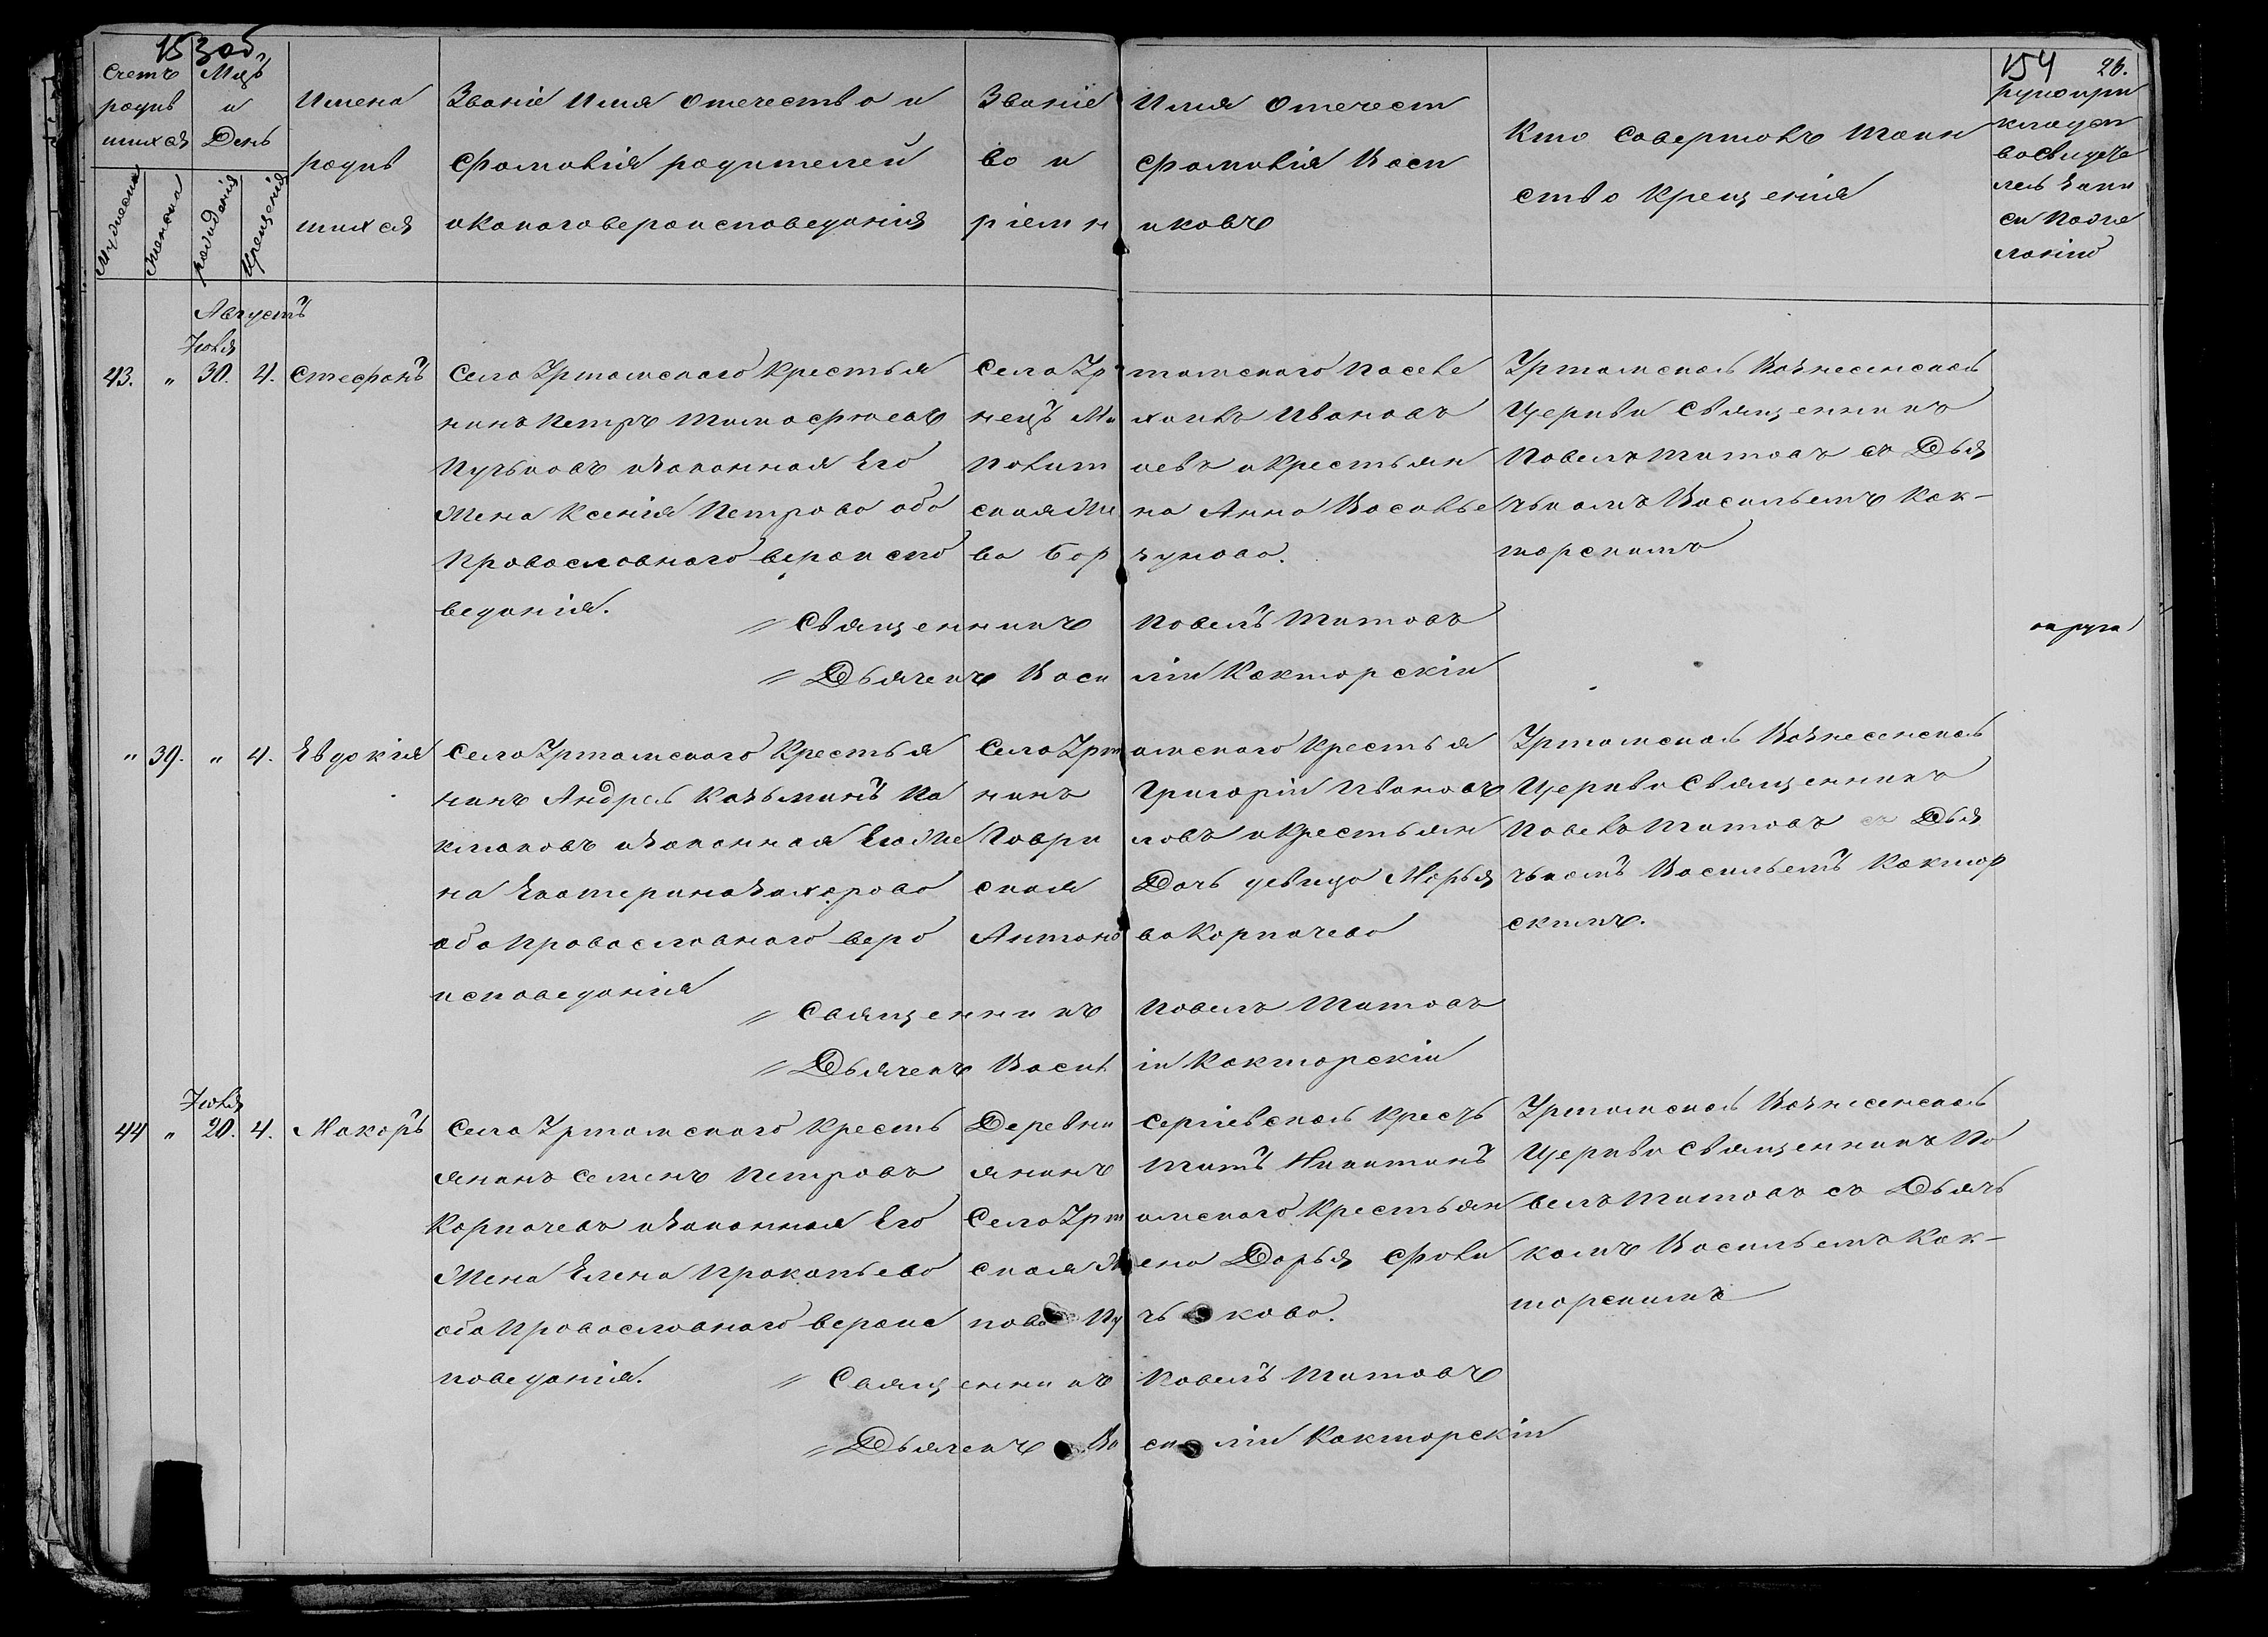 153 об
154 26.
Счетъ родив шихся
Мцъ и День
Имена родив шихся
Званіе Имя Отечество и Фамилія родителей и какого вероисповеданія
Званіе Имя Отечест
во и Фамилія Восп
ріемн иковъ
Кто совершалъ Таин
ство Крещенія
Рукопри
кладст
во свидете
лей запи
си по же
ланію
Мужеска
Женска
рожденія
Крещенія
Августъ
Іюля
43. " 30. 4. Стефанъ
Села Уртамскаго Крестья
нинъ Петръ Тимофеевъ
Пучковъ и законная Его
Жена Ксенія Петрова оба
Православнаго вероиспо
веданія.
Села Ур тамскаго Поселе
нецъ Ми хаилъ Ивановъ
на Анна Василье
ва Бор чукова.
Уртамской Вознесенской
Церкви Священникъ
Павелъ Титовъ съ Дья
чькомъ Васильемъ Как-
торскимъ
" Священникъ Павелъ Титовъ
" Дьячекъ Васи лій Какторскій
" 39. " 4. Евдокія
Села Уртамскаго Крестья
нинъ Андрей Козьминъ По
клаковъ и законная Его Же
на Екатерина Захарова
оба Православнаго веро
исповеданія
Села Урт амскаго Крестья
нинъ Григорій Ивановъ
Гаври ловъ и Крестьян
ская Дочь девица Марья
Антоно ва Корпачева
Уртамской Вознесенской
Церкви Священникъ
Павелъ Титовъ съ Дья
чькомъ Васильемъ Кактор
скимъ.
" Священникъ Павелъ Титовъ
" Дьячекъ Васил ій Какторскій
Іюля
44 " 20. 4. Макаръ
Села Уртамскаго Кресть
янинъ Семенъ Петровъ
Корпачевъ и законная Его
Жена Елена Прокопьева
оба Православнаго вероис
поведанія.
Деревни Сергіевской Кресть
янинъ Титъ Никитинъ
Села Урт амскаго Крестьян
ская Ж ена Дарья Фили
пова Пу чь кова.
Уртамской Вознесенской
Церкви Священникъ Па
велъ Титовъ съ Дьячь
комъ Васильемъ Как-
торскимъ
" Священникъ Павелъ Титовъ
" Дьячекъ Ва си лій Какторскій